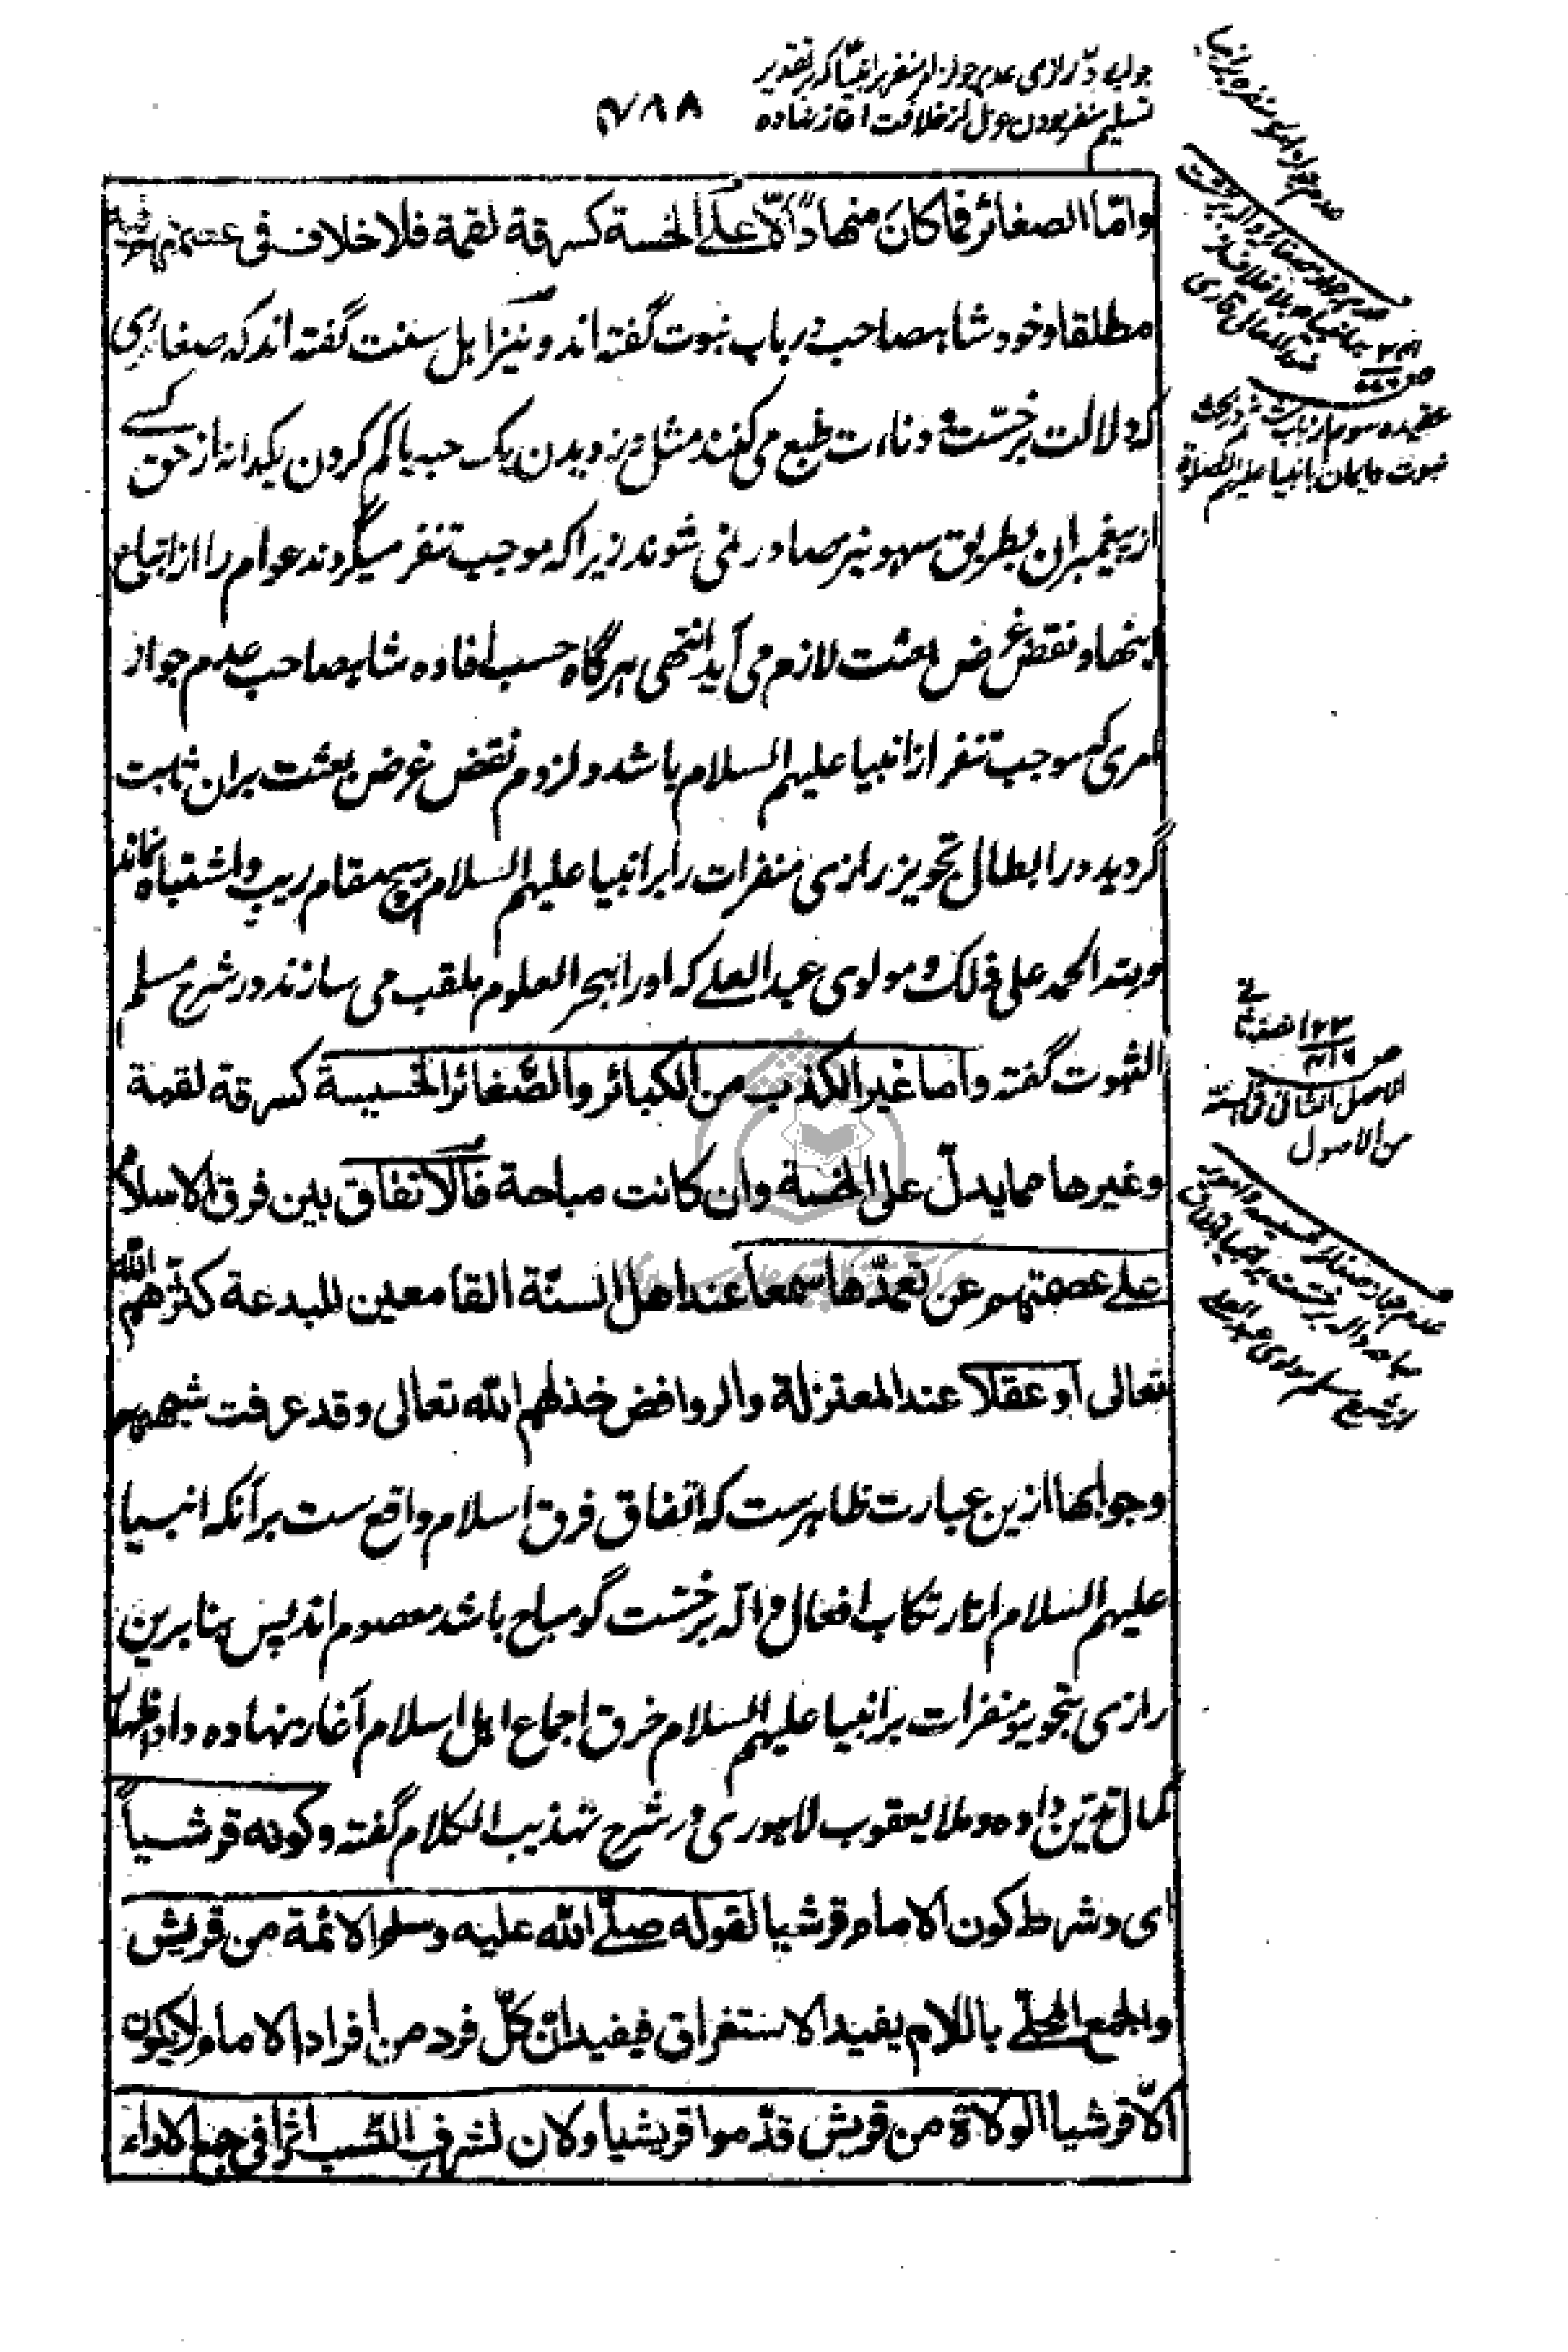 جواب رازی عدم جواز امر منفر بر انبیا که بر تقدیر
تسلیم منفر بودن عزل از خلافت آغاز نهاده
۷۸۸
وامّا الصغائر فما کان منها دالّا علی الخسة کسرقة لقمة فلا خلاف فی عصمتهم
مطلقا و خود شاهصاحب در باب نبوت گفته اند و نیز اهل سنت گفته اند که صغائری
که دلالت بر خسّت و دناءت طبع می کنند مثل دزدیدن یک حبه یا کم کردن یکدانه از حق کسے
از پیغمبران بطریق سهو نیز صادر نمی شوند زیرا که موجب تنفر میگردند عوام را از اتباع
اینها و نقض غرض بعثت لازم می آید انتهی هرگاه حسب افاده شاهصاحب عدم جواز
امری که موجب تنفر از انبیا علیهم السلام باشد و لزوم نقض غرض بعثت بران ثابت
گردید در ابطال تجویز رازی منفرات را بر انبیا علیهم السلام هیچ مقام ریب و اشتباه نماند
و لله الحمد علی ذلک و مولوی عبد العلے که او را ببحر العلوم ملقب می سازند در شرح مسلم
الثبوت گفته واما غیر الکذب من الکبائر والصّغائر الخسیسة کسرقة لقمة
وغیرها مما یدلّ علی الخسة وان کانت مباحة فالاتفاق بین فرق الاسلام
علے عصمتهم عن تعمدّها سمعا عند اهل السنّة القامعین للبدعة کثّرهم الله
تعالی او عقلا عند المعتزلة والروافض خذلهم الله تعالی وقد عرفت شبههم
وجوابها ازین عبارت ظاهرست که اتفاق فرق اسلام واقع ست بر آنکه انبیا
علیهم السلام از ارتکاب افعال داله بر خسّت گو مباح باشد معصوم اند پس بنابرین
رازی بتجویز منفرات بر انبیا علیهم السلام خرق اجماع اهل اسلام آغاز نهاده داد اظهار
کمال تدین داده و ملا یعقوب لاهوری در شرح تهذیب الکلام گفته وکونه قرشیاً
ای وشرط کون الامام قرشیا لقوله صلّے الله علیه وسلم الائمة من قریش
والجمع المحلّے باللام یفید الاستغراق فیفید انّ کلّ فرد من افراد الامام لایکون
الّا قرشیا الولاة من قریش قدّموا قریشیا ولان لشرف النّسب اثرا فی جمع الاراء
عقیده سوم از باب ششم در بحث
نبوت و ایمان بانبیا علیهم الصلاة
الاصل الثانی فی السنّة
من الاصول